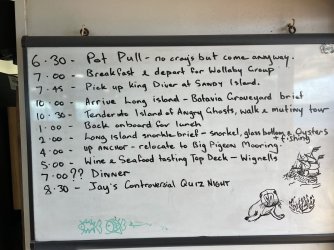 6.30 - Pot Pull - no crays but come anyway.
7.00 - Breakfast & depart for Wallaby Group
7.45 - Pick up King Diver at Sandy Island.
10.00 - Arrive Long island - Batavia Graveyard brief
10.30 - Tender to Island of Angry Ghosts, walk & mutiny tour
1.00 - Back onboard for lunch
2.00 - Long Island snorkle brief - snorkel, glass bottom & Oysters
& fishing
4.00 - up anchor - relocate to Big Pigeon Mooring
5.00 - Wine & Seafood tasting Top Deck - Wignells
7.00 ?? Dinner
8.30 - Jay's Controversial QUIZ NIGHT